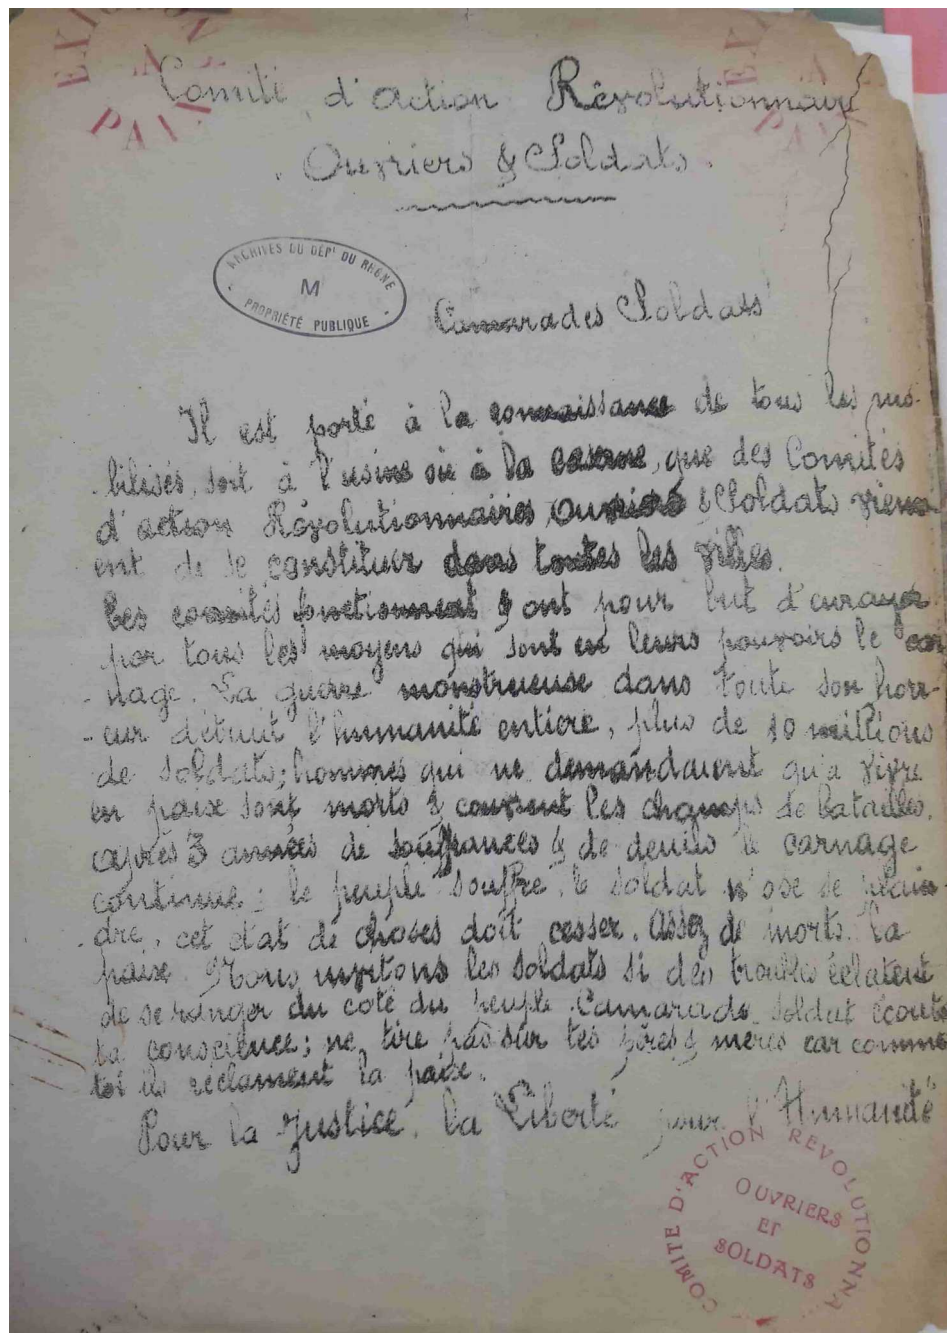 Comité d'action Révolutionnaire
Ouvriers & Soldats.
ARCHIVES DU DÉPT DU RHÔNE
M
PROPRIÉTÉ PUBLIQUE
Camarades Soldats
Il est porté à la connaissance de tous les mo-
bilisés, soit à l'usine ou à la caserne, que des Comités
d'action Révolutionnaires Ouvriers & Soldats vienn
ent de se constituer dans toutes les villes.
Ces comités fonctionnent & ont pour but d'enrayer
par tous les moyens qui sont en leurs pouvoirs le car
-nage. La guerre monstrueuse dans toute son horr-
-eur détruit l'humanité entière, plus de 10 millions
de soldats; hommes qui ne demandaient qu'à vivre
en paix sont morts & couvrent les champs de batailles,
après 3 années de souffrances & de deuils le carnage
continue; le peuple souffre, le soldat n'ose se plain-
-dre, cet etat de choses doit cesser. Assez de morts. La
paix. Nous invitons les soldats si des troubles éclatent
de se ranger du coté du peuple. Camarade soldat écoute
ta conscience; ne tire pas sur tes pères & mères car comme
toi ils réclament la paix.
Pour la Justice, la Liberté pour l'Humanité
COMITE D'ACTION REVOLUTIONNA
OUVRIERS
ET
SOLDATS